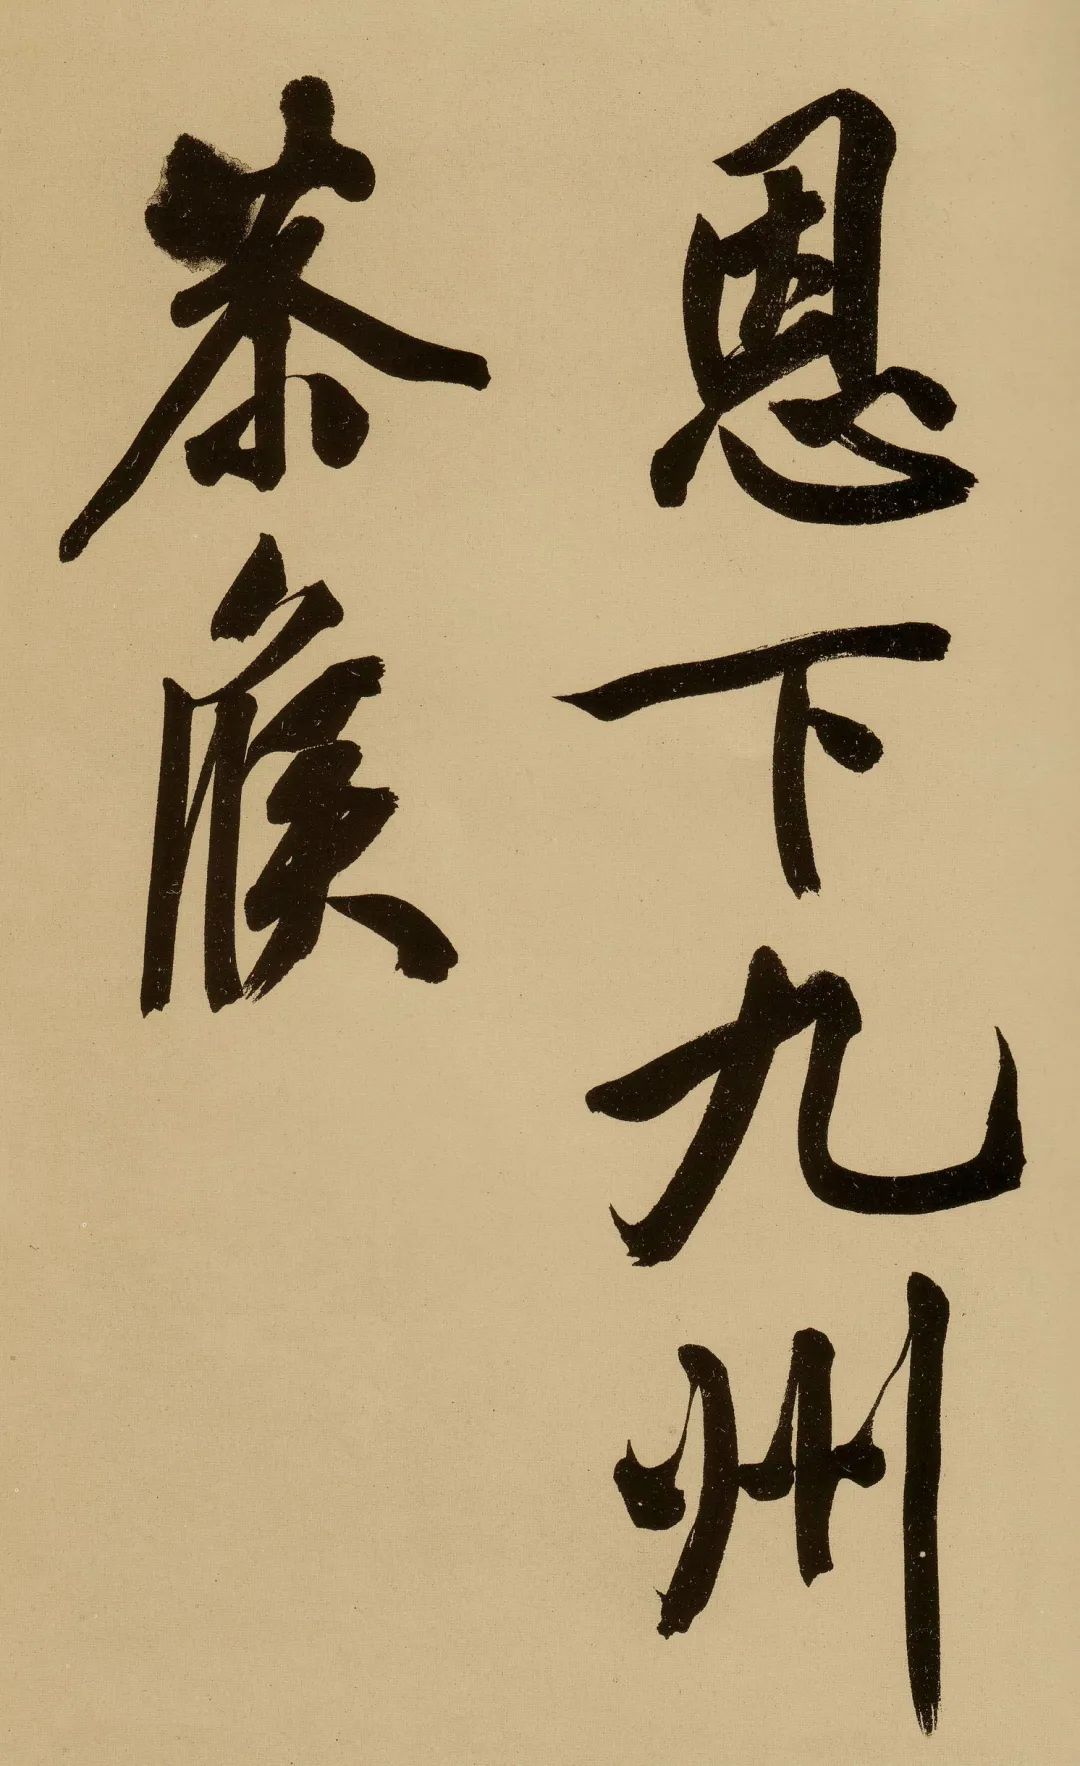 恩下九州
茶候